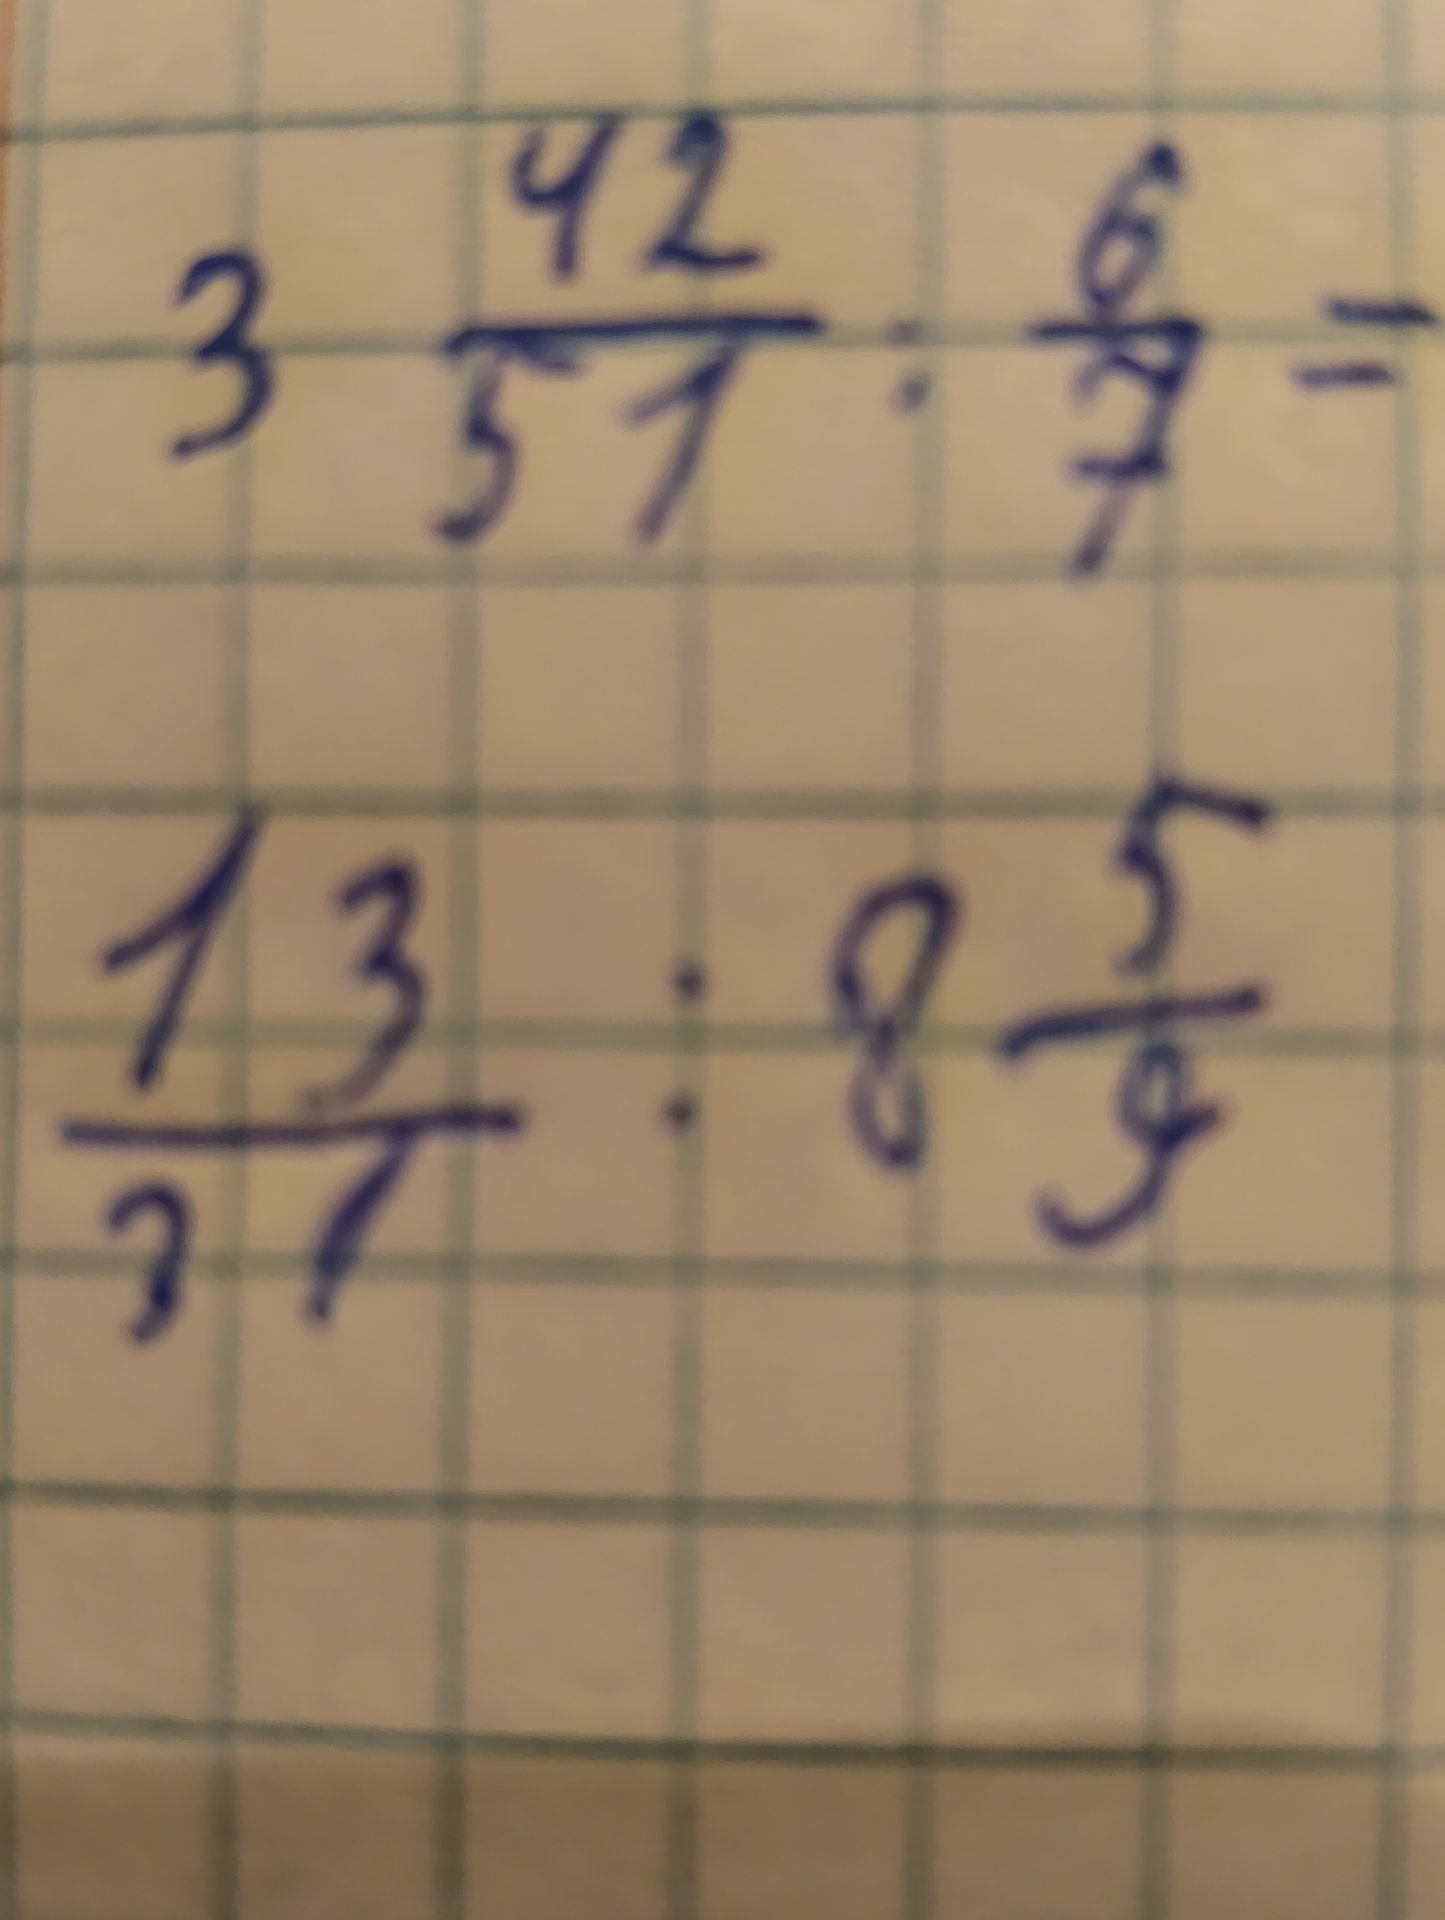 3 42/51 : 6/7 =
13/31 : 8 5/9